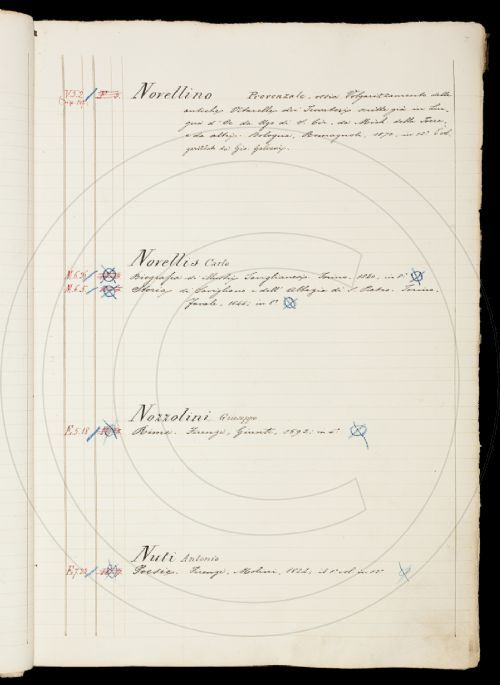 V.5.2 Novellino Provenzale, ossia Volgarizzamento delle
antiche Vitarelle dei Trovatori scritte già in Lin-
gua d'Oc da Ugo di S. Cir, da Mich. della Torre,
e da altri. Bologna, Romagnoli, 1870, in 12°
Novellis Carlo
Biografia di Illustri Saviglianesi. Torino, 1840, in 8°
Storia di Savigliano e dell' Abbazia di S. Pietro. Torino,
Favale, 1844; in 8°
Nozzolini Giuseppe
E.5.18 Rime. Firenze, Giunti, 1592; in 4°
Nuti Antonio
Poesie. Firenze, Molini, 1824; in